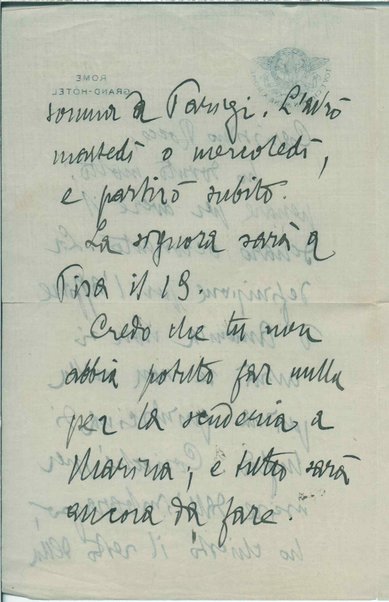 somma a Parigi. L'avrò
martedì o mercoledì,
e partirò subito.
La signora sarà a
Pisa il 19.
Credo che tu non
abbia potuto far nulla
per la scuderia a
Marina; e tutto sarà
ancora da fare.